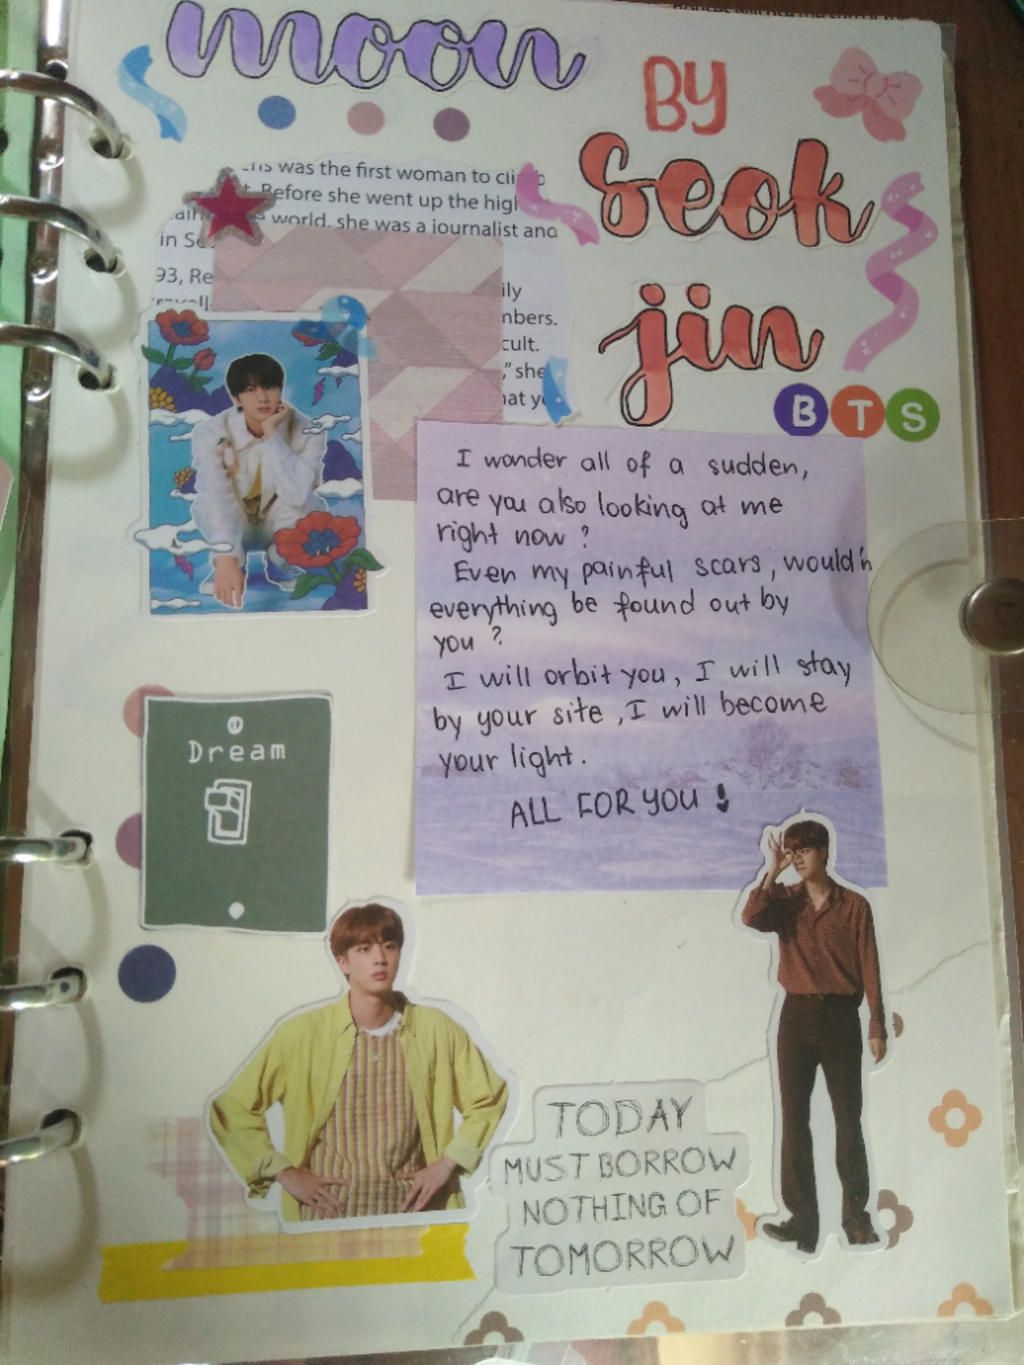 moon
BY
Seok
jin
BTS
was the first woman to
Before she went up the
world, she was a journalist and
in
93, Re
ily
mbers.
cult.
she
I wonder all of a sudden,
are you also looking at me
right now?
Even my painful scars, would'n
everything be found out by
you?
I will orbit you, I will stay
by your site, I will become
your light.
ALL FOR YOU!
Dream
TODAY
MUST BORROW
NOTHING OF
TOMORROW